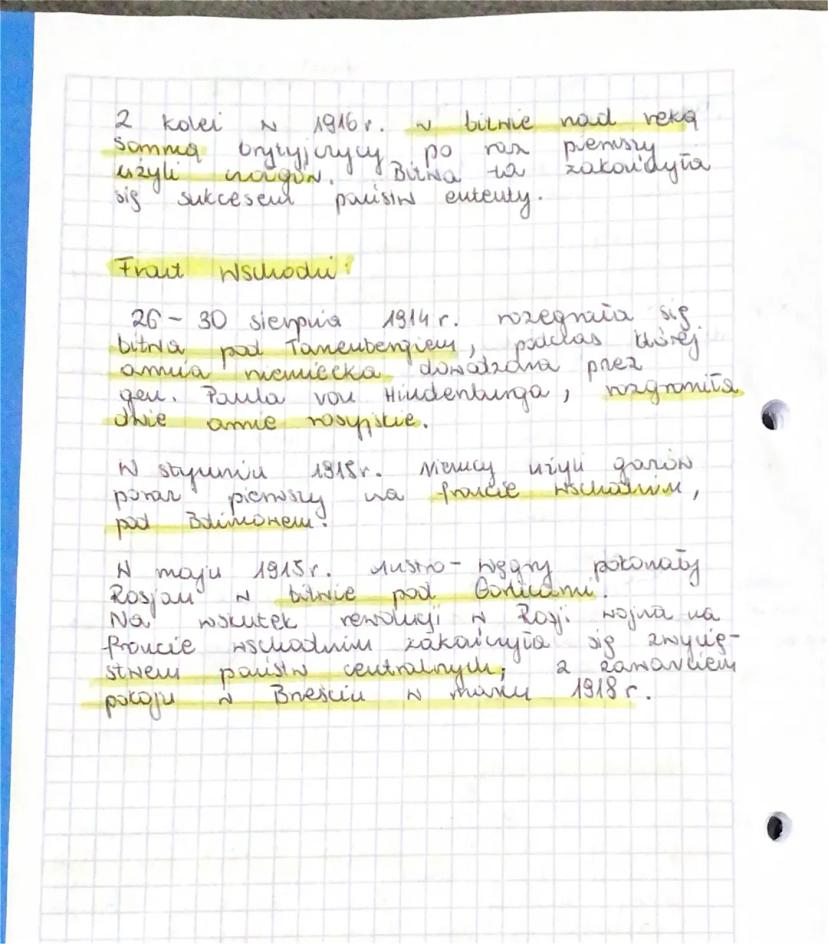 Z kolei w 1916 r. w bitwie nad reką
Sommą brytyjczycy po raz pierwszy
użyli czołgów. Bitwa ta zakończyła
się sukcesem państw ententy.
Front Wschodni:
26-30 sierpnia 1914 r. rozegrała się
bitwa pod Tanenbergiem, podczas której
armia niemiecka dowodzona przez
gen. Paula von Hindenburga, rozgromiła
dwie armie rosyjskie.
W styczniu 1915r. Niemcy użyli gazów
poraz pierwszy na froncie wschodnim,
pod Bolimowem.
W maju 1915r. Austro-Węgry pokonały
Rosjan w bitwie pod Gorlicami.
Na wskutek rewolucji w Rosji wojna na
froncie wschodnim zakończyła się zwycię-
stwem państw centralnym; z zawarciem
pokoju w Brześciu w marcu 1918 r.